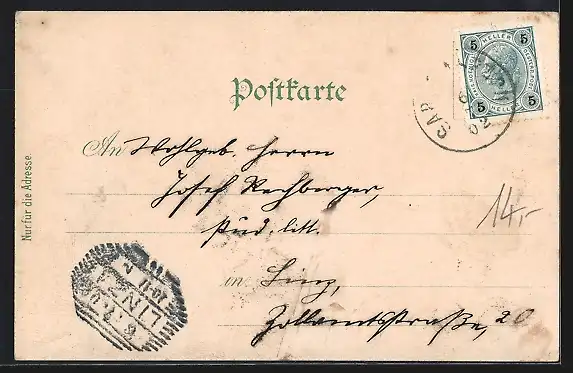 Postkarte
An Wohlgeb. Herrn
Josef Rechberger,
stud. litt.
in Linz,
Zollamtsstraße, 20
Nur für die Adresse.
14,-
5 HELLER 5
5 HELLER 5
LINZ
02